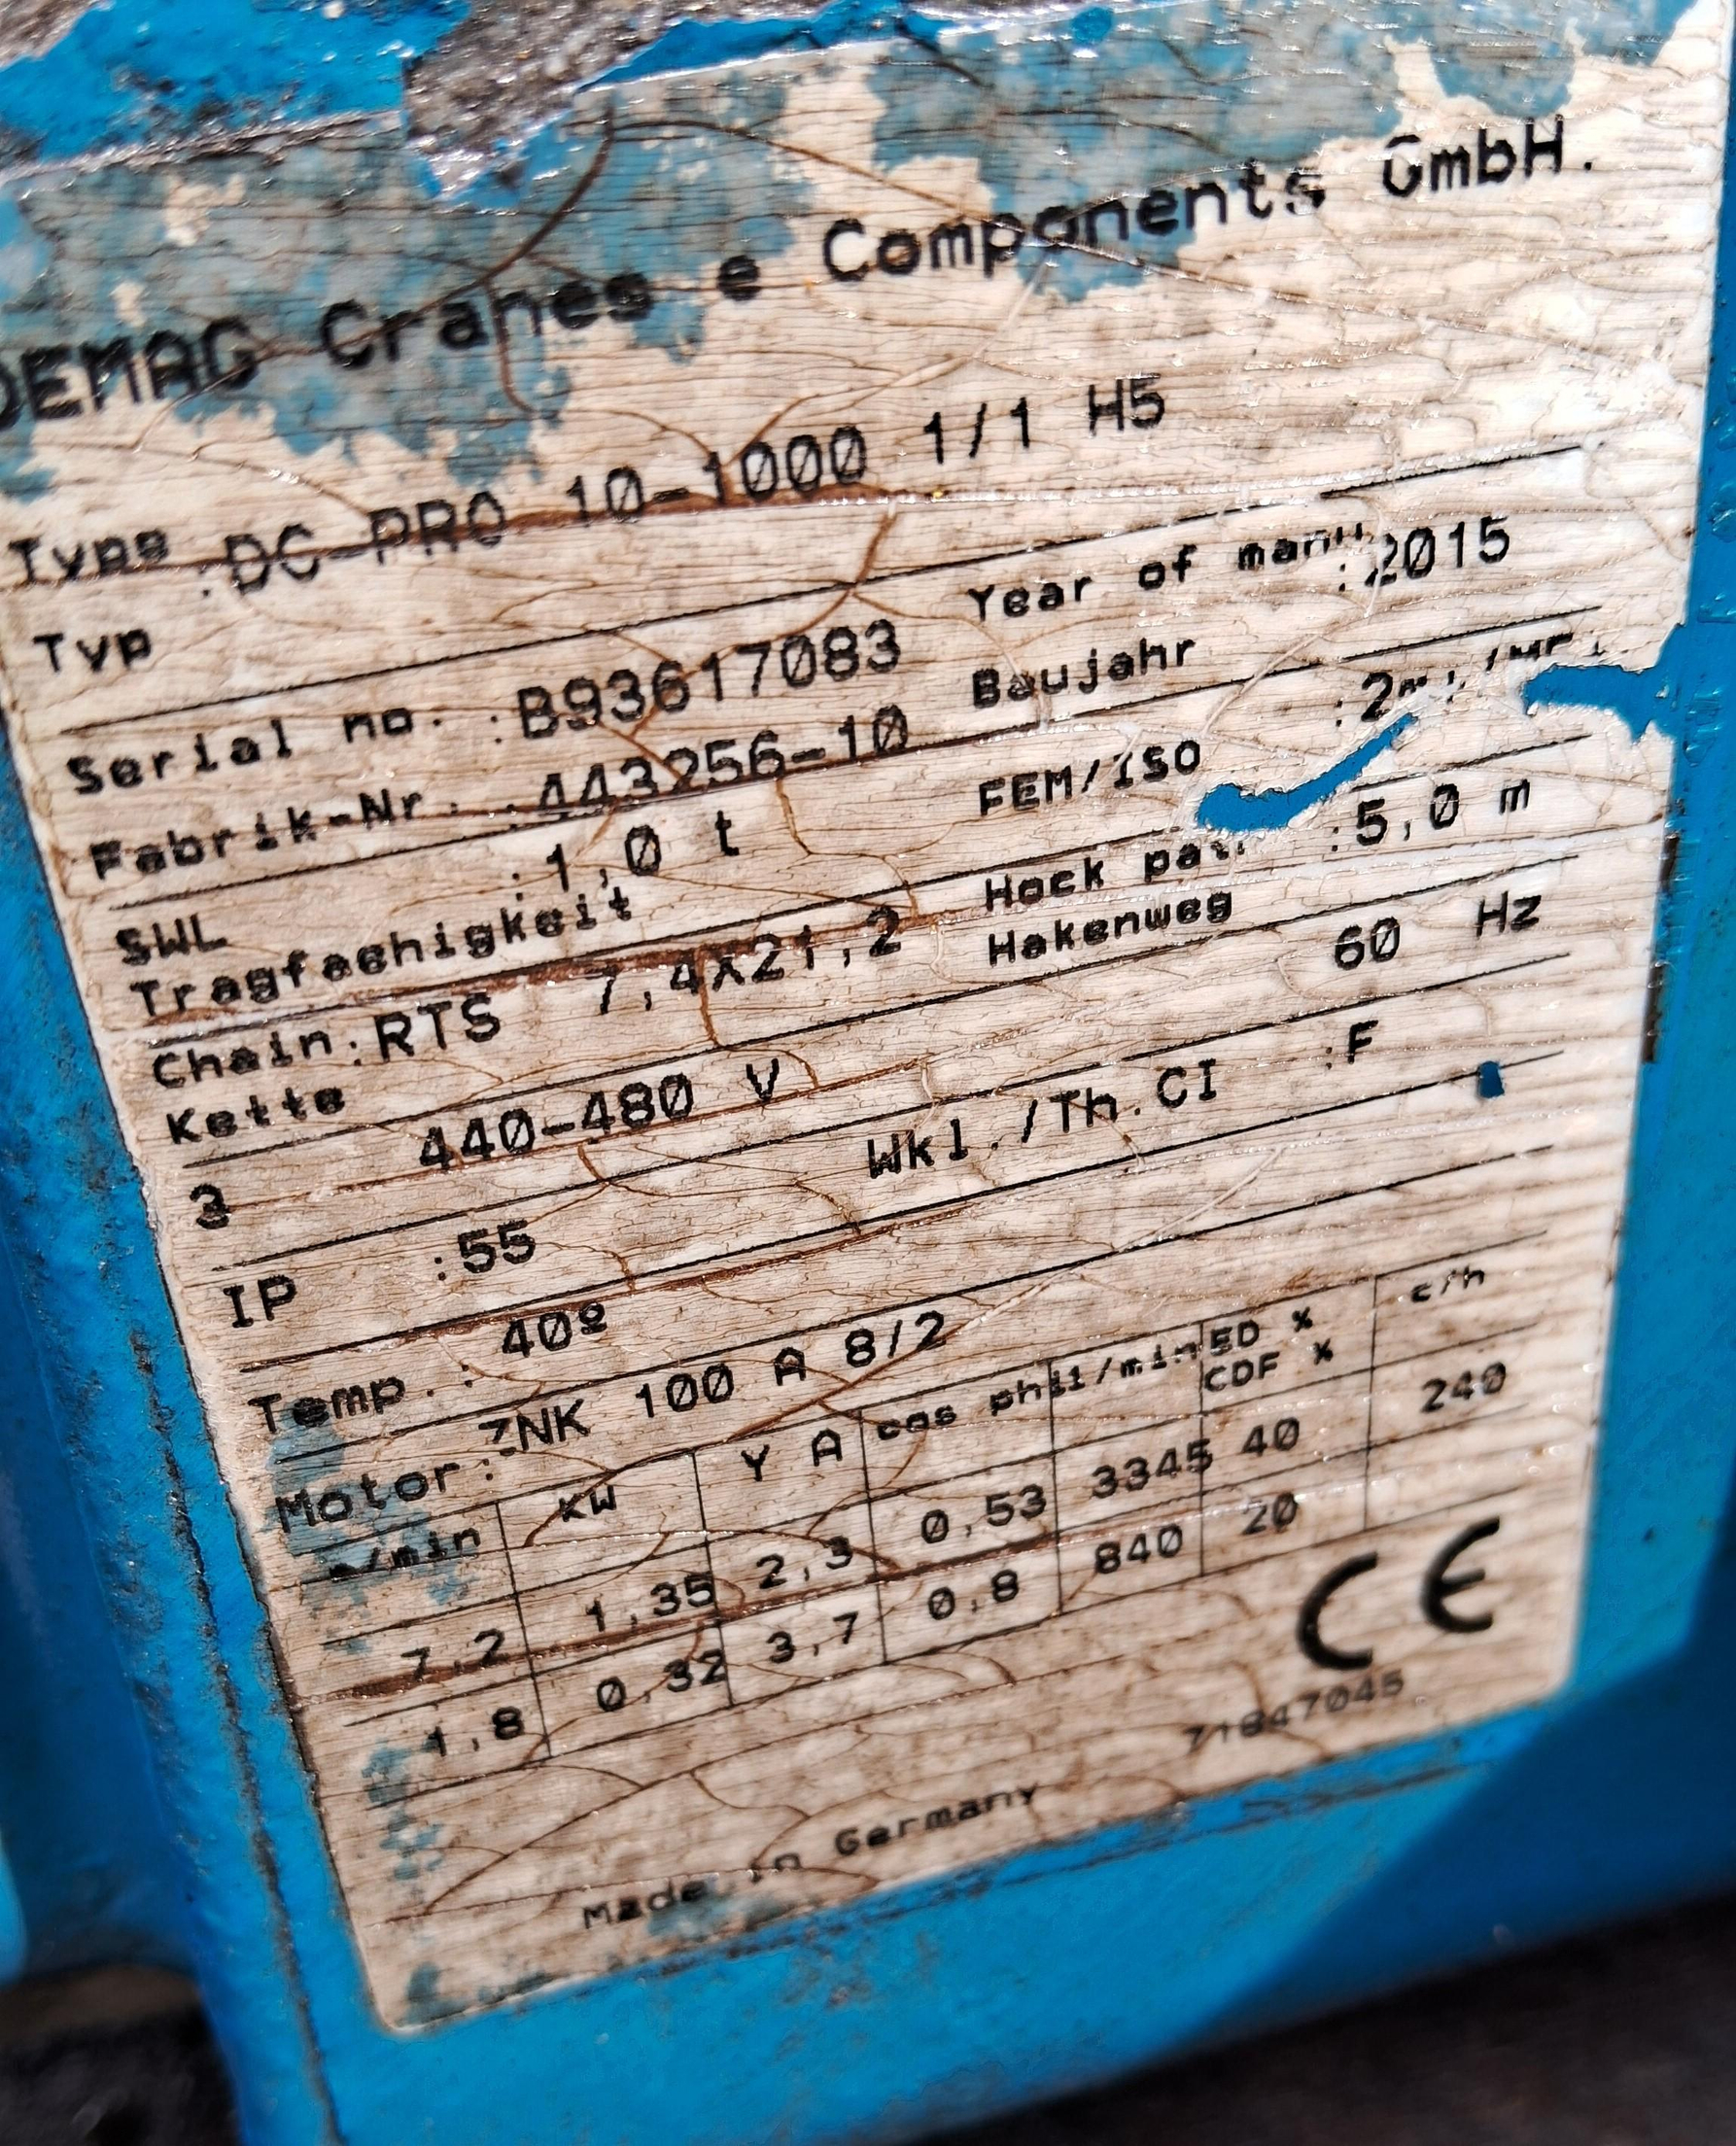 DEMAG Cranes e Components GmbH.
Type :DC-PRO 10-1000 1/1 H5
Typ
Serial no. :B93617083 Year of :2015
Fabrik-Nr. :443256-10 Baujahr
SWL :1,0 t FEM/ISO
Tragfaehigkeit
Chain:RTS 7,4X21,2 Hock :5,0 m
Kette Hakenweg
3 440-480 V 60 Hz
IP :55 Wkl./Th.CI :F
Temp.: 40º
Motor: ZNK 100 A 8/2
m/min KW Y A cos phi 1/min ED % c/h
CDF %
7,2 1,35 2,3 0,53 3345 40 240
1,8 0,32 3,7 0,8 840 20
CE
71847045
Made in Germany